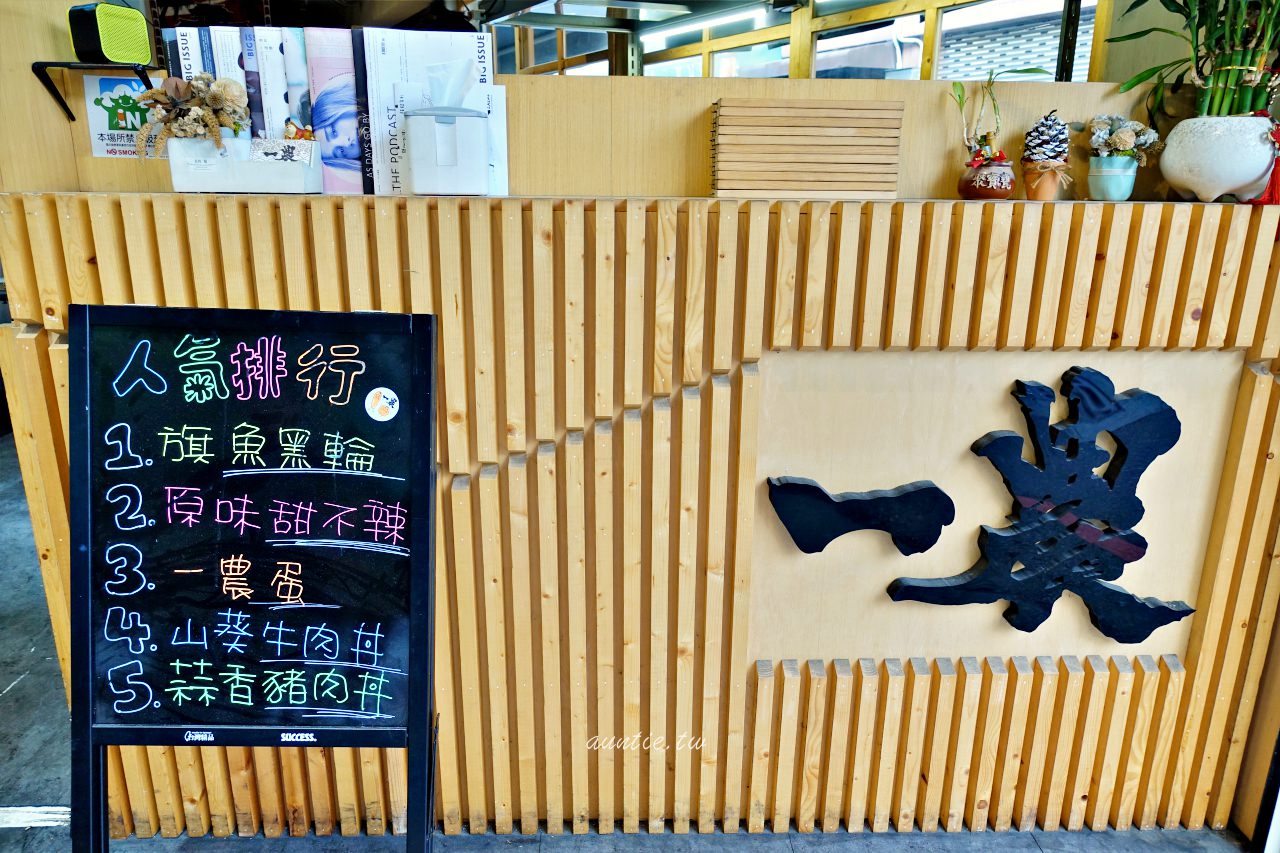 BIG ISSUE
BIG ISSUE
THE PODCAST
AS DAYS GO BY
iN
本場所
NO SMOKING
一農
人氣排行
一農
1. 旗魚黑輪
2. 原味甜不辣
3. 一農蛋
4. 山葵牛肉丼
5. 蒜香豬肉丼
SUCCESS.
一農
auntie.tw